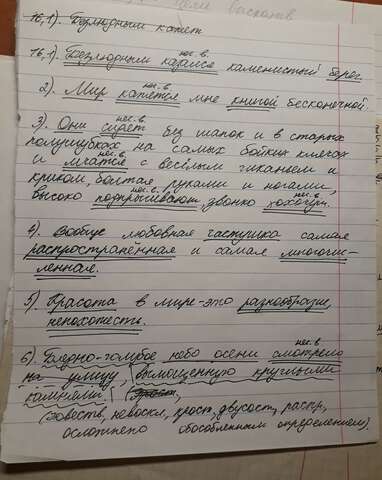 16,1). Безлюдным кажет
нес.в.
16,1). Безлюдным казался каменистый берег.
нес.в.
2). Мир кажется мне книгой бесконечной.
нес.в.
3). Они сидят без шапок и в старых
полушубках на самых бойких клячах
нес.в.
и мчатся с весёлым гиканьем и
криком, болтая руками и ногами,
нес.в. нес.в.
высоко подпрыгивают, звонко хохочут.
4). Вообще любовная частушка самая
распространённая и самая многочис-
ленная.
5). Красота в мире-это разнообразие,
непохожесть.
нес.в.
6). Бледно-голубое небо осени смотрело
на улицу, вымощенную круглыми
камнями. (
(повеств, невоскл, прост, двусост, распр,
осложнено обособленным определением).